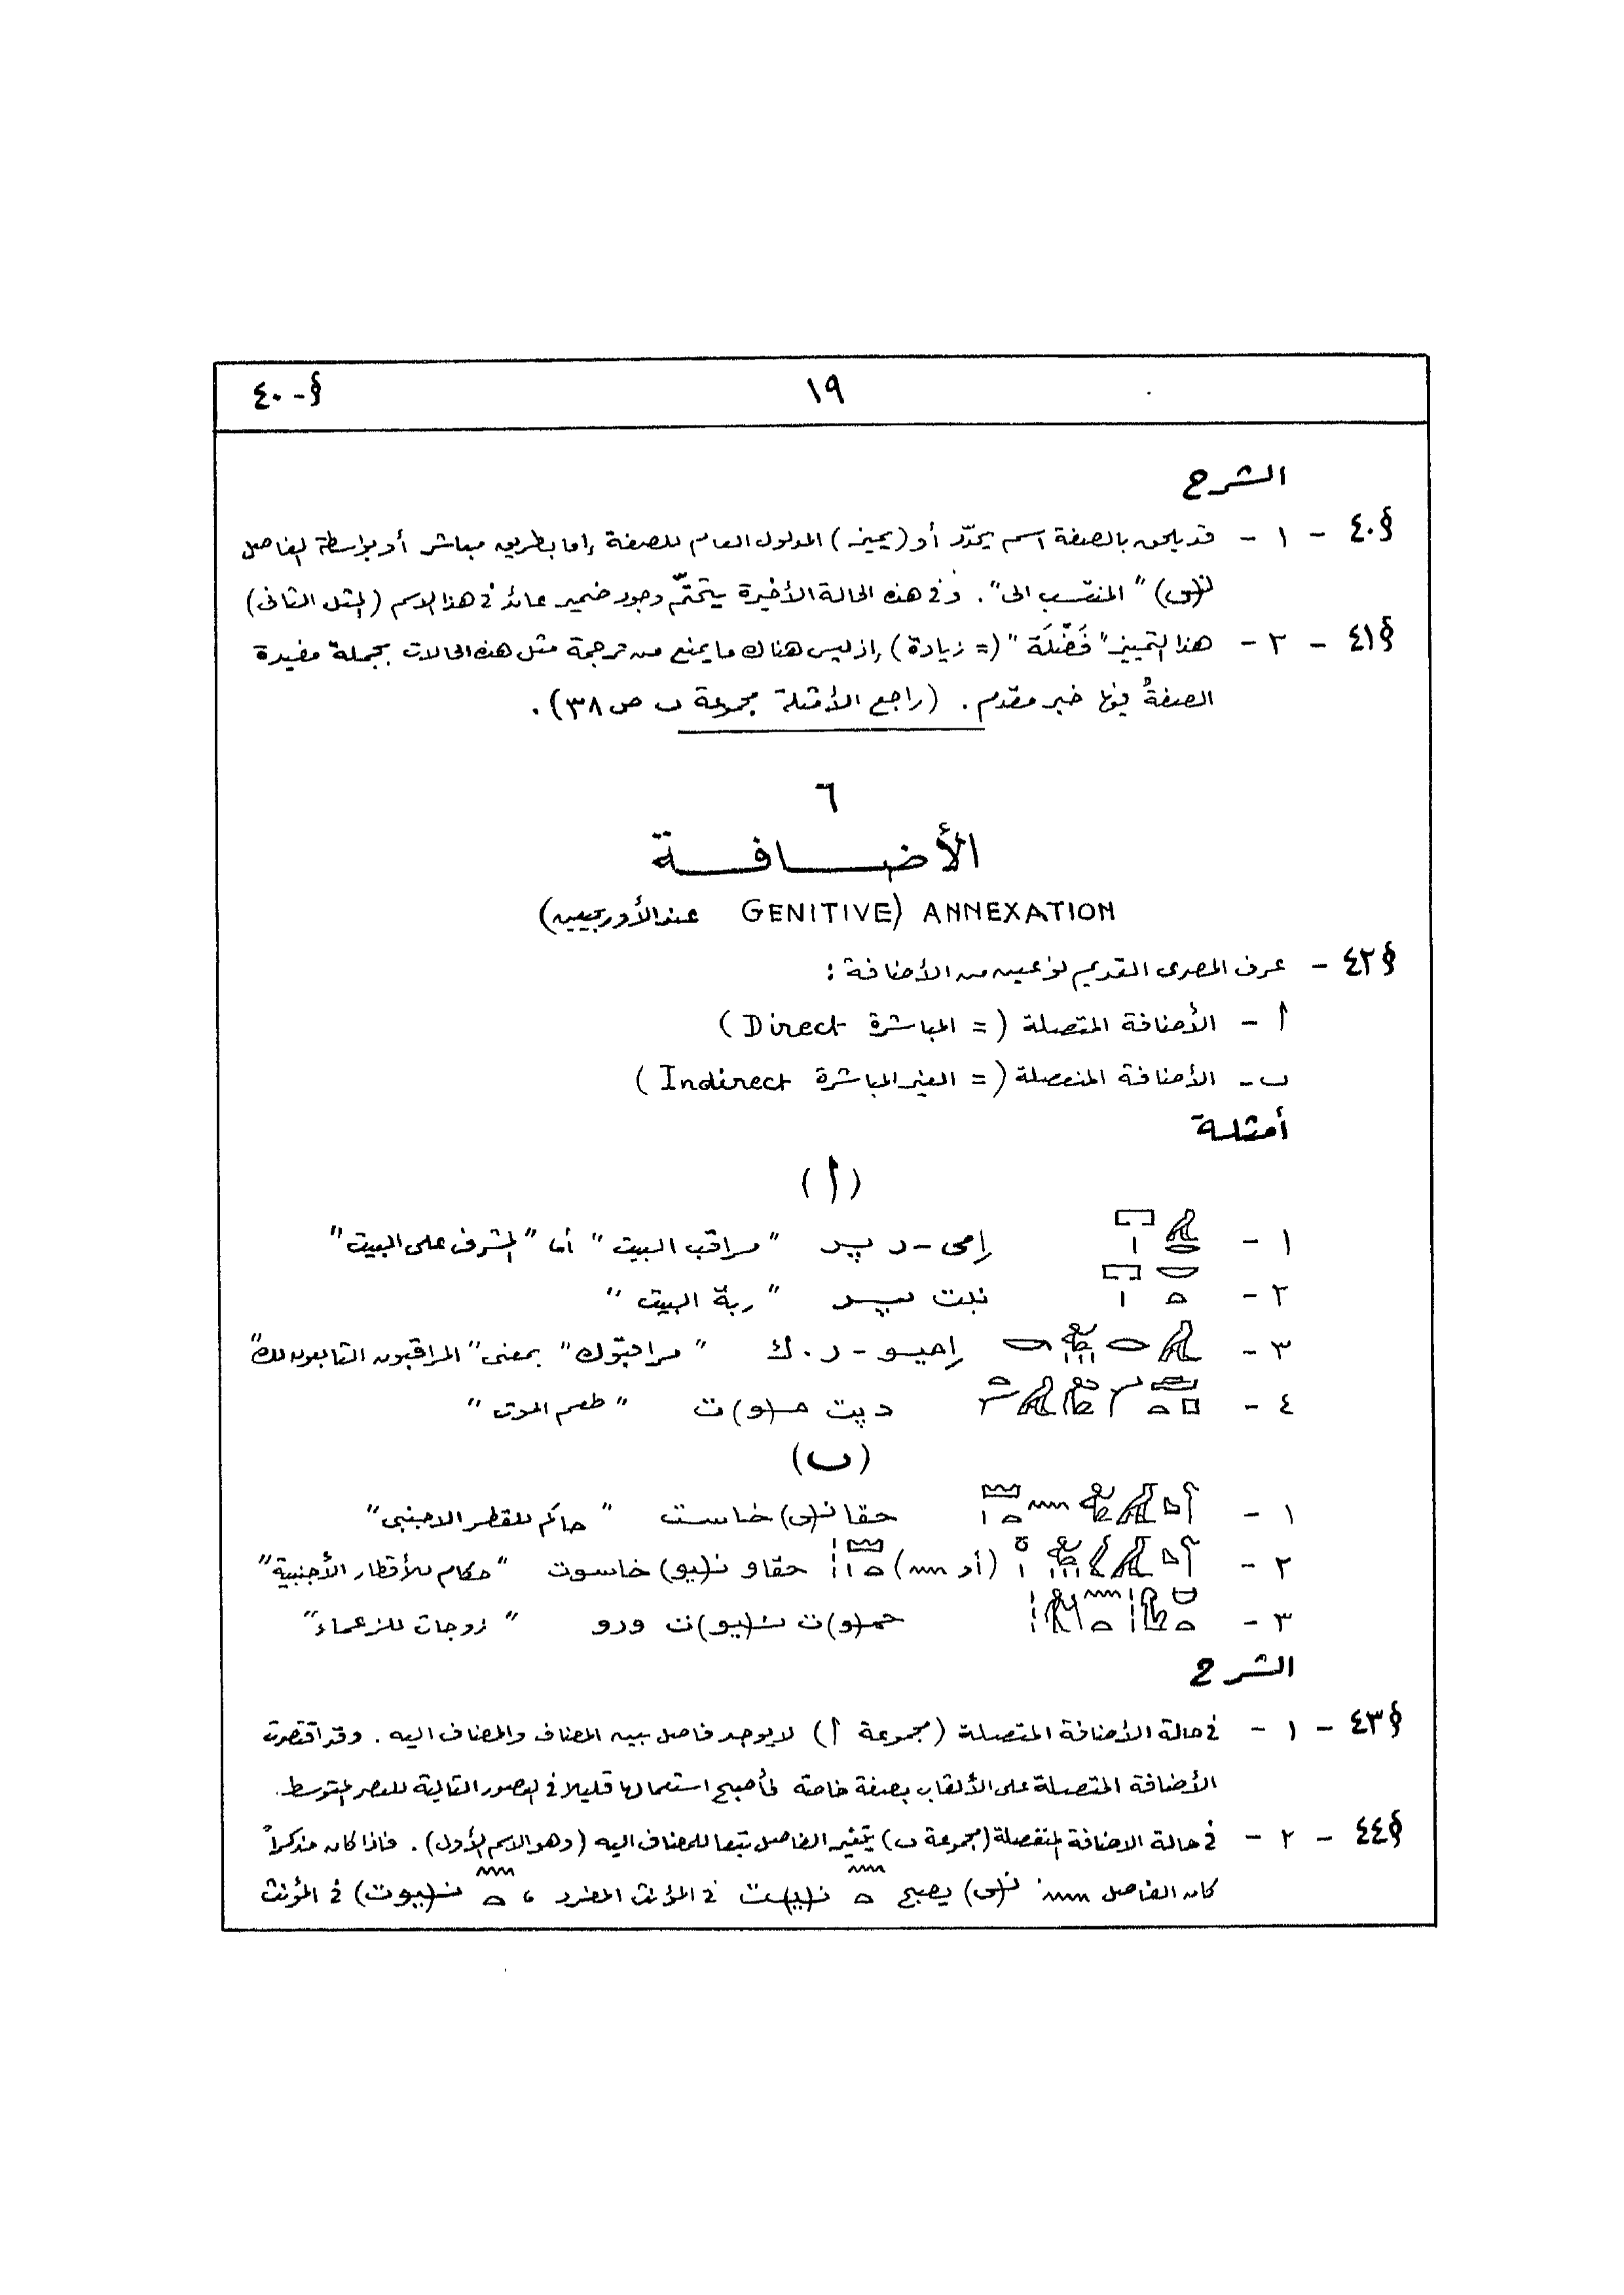 § - ٤٠
١٩
الشرح
§ ٤٠ - ١ - قد يلحق بالصفة اسم يحدّد أو (يميز) المدلول العام للصفة إما بطريق مباشر أو بواسطة الفاصل
ن(ى) "المنتسب الى". وفى هذه الحالة الأخيرة يتحتّم وجود ضمير عائد فى هذا الاسم (المثل الثانى)
§ ٤١ - ٢ - هذا التمييز "فَضْلَة" (= زيادة) إذ ليس هناك ما يمنع من ترجمة مثل هذه الحالات بجملة مفيدة
الصفةُ فيها خبر مقدم. (راجع الأمثلة مجموعة ب ص ٣٨).
٦
الأضافة
ANNEXATION (GENITIVE عند الأوربيين)
§ ٤٢ - عرف المصرى القديم نوعين من الأضافة:
أ - الأضافة المتصلة (= المباشرة Direct)
ب - الأضافة المنفصلة (= الغير المباشرة Indirect)
أمثلة
(أ)
١ - إمى - ر پر "مراقب البيت" أما "المشرف على البيت"
٢ - نبت پر "ربة البيت"
٣ - إميو - ر . ك "مراقبوك" بمعنى "المراقبون التابعون لك"
٤ - دپت م(و)ت "طعم الموت"
(ب)
١ - حقا ن(ى) خاست "حاكم للقطر الاجنبى"
٢ - (أو 𓈖) حقاو ن(يو) خاسوت "حكام للأقطار الأجنبية"
٣ - حم(و)ت ن(يو)ت ورو "زوجات للزعماء"
الشرح
§ ٤٣ - ١ - فى حالة الأضافة المتصلة (مجموعة أ) لا يوجد فاصل بين المضاف والمضاف اليه. وقد اقتصرت
الأضافة المتصلة على الألقاب بصفة خاصة فأصبح استعمالها قليلا فى العصور التالية للعصر المتوسط.
§ ٤٤ - ٢ - فى حالة الاضافة المنفصلة (مجموعة ب) يتغير الفاصل تبعا للمضاف اليه (وهو الاسم الأول). فاذا كان مذكراً
كان الفاصل 𓈖 ن(ى) يصبح 𓈖𓏏 ن(ي)ت فى المؤنث المفرد ، 𓈖𓏏 ن(يوت) فى المؤنث